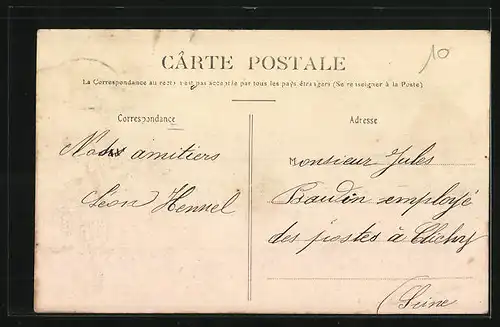 CÂRTE POSTALE
10
La Correspondance au recto n'est pas acceptée par tous les pays étrangers (Se renseigner à la Poste)
Correspondance
Adresse
amitiers
Léon Hennel
Monsieur Jules
Baudin employé
des postes à Clichy
(Seine